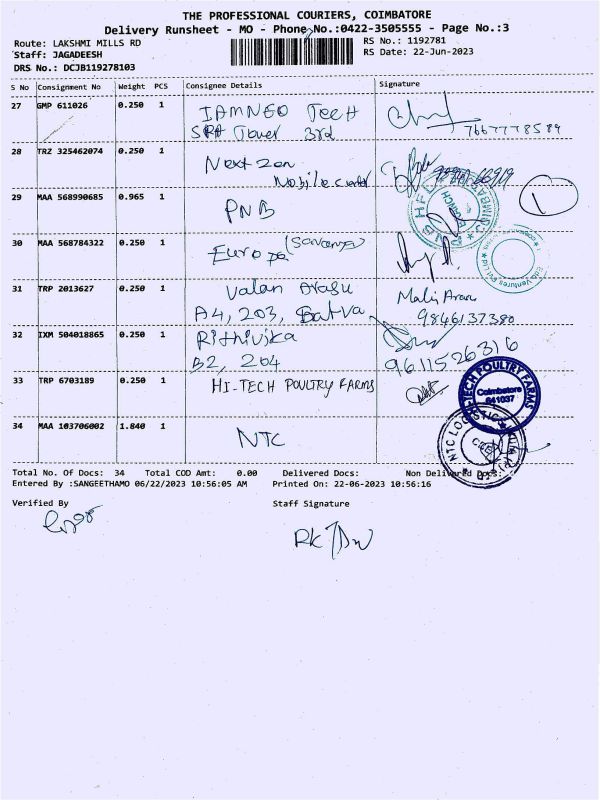 THE PROFESSIONAL COURIERS, COIMBATORE
Delivery Runsheet - MO - Phone No.:0422-3505555 - Page No.:3
Route: LAKSHMI MILLS RD
RS No.: 1192781
Staff: JAGADEESH
RS Date: 22-Jun-2023
DRS No.: DCJB119278103
S No Consignment No Weight PCS Consignee Details Signature
27 GMP 611026 0.250 1 IAMNEO Tech
Tower 3rd
7667778589
28 TRZ 325462074 0.250 1 Next zen
Mobile
29 MAA 568990685 0.965 1 PNB
30 MAA 568784322 0.250 1 Europa
31 TRP 2013627 0.250 1 Valan Arasu
A4, 203,
9846137380
32 IXM 504018865 0.250 1 Rithivika
B2, 204
9611526316
33 TRP 6703189 0.250 1 HI-TECH POULTRY FARMS
HI-TECH POULTRY FARMS
Coimbatore
641037
34 MAA 103706002 1.840 1 NTC
NTC LOGISTICS
Total No. Of Docs: 34 Total COD Amt: 0.00 Delivered Docs: Non Delivered Docs:
Entered By :SANGEETHAMO 06/22/2023 10:56:05 AM Printed On: 22-06-2023 10:56:16
Verified By Staff Signature